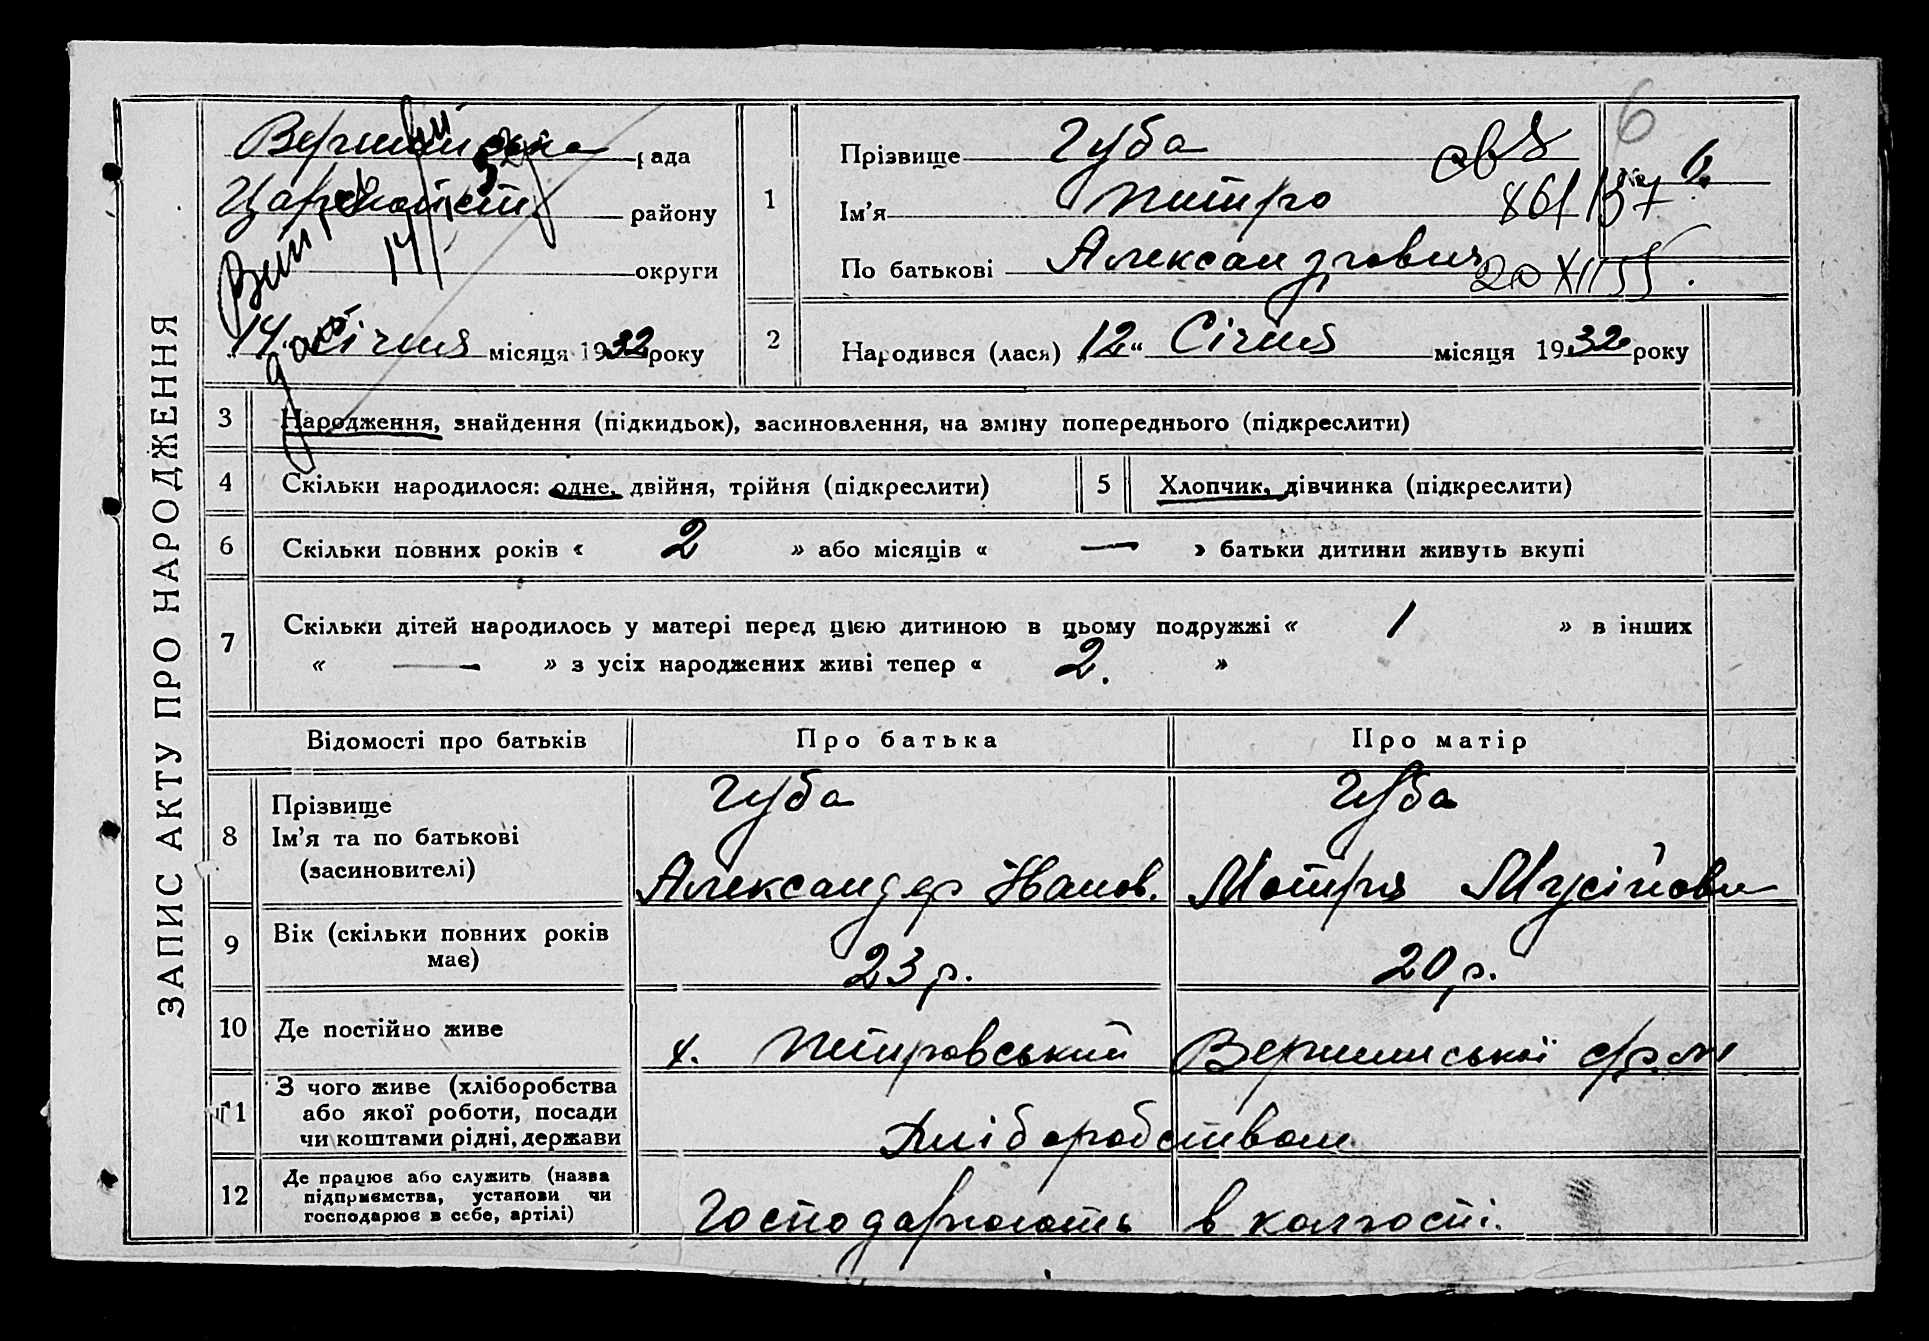 ЗАПИС АКТУ ПРО НАРОДЖЕННЯ
6
рада
району
округи
14 Січня місяця 1932 року
1
Прізвище Губа
Ім’я Питро
По батькові Александрович
861/137
20 XII 55
6.
2 Народився (лася) „12“ Січня місяця 1932 року
3 Народження, знайдення (підкидьок), засиновлення, на зміну попереднього (підкреслити)
4 Скільки народилося: одне, двійня, трійня (підкреслити) 5 Хлопчик, дівчинка (підкреслити)
6 Скільки повних років « 2 » або місяців « — » батьки дитини живуть вкупі
7 Скільки дітей народилось у матері перед цією дитиною в цьому подружжі « 1 » в інших
« — » з усіх народжених живі тепер « 2. »
Відомості про батьків Про батька Про матір
8 Прізвище
Ім’я та по батькові
(засиновителі)
Губа Губа
Александр Іванов. Мотря Мусійовн
9 Вік (скільки повних років
має)
23 р. 20 р.
10 Де постійно живе х. Питровський Вершинської с/р.
11 З чого живе (хліборобства
або якої роботи, посади
чи коштами рідні, держави
Хліборобством
12 Де працює або служить (назва
підприємства, установи чи
господарює в себе, артілі)
Господарюють в колгоспі.